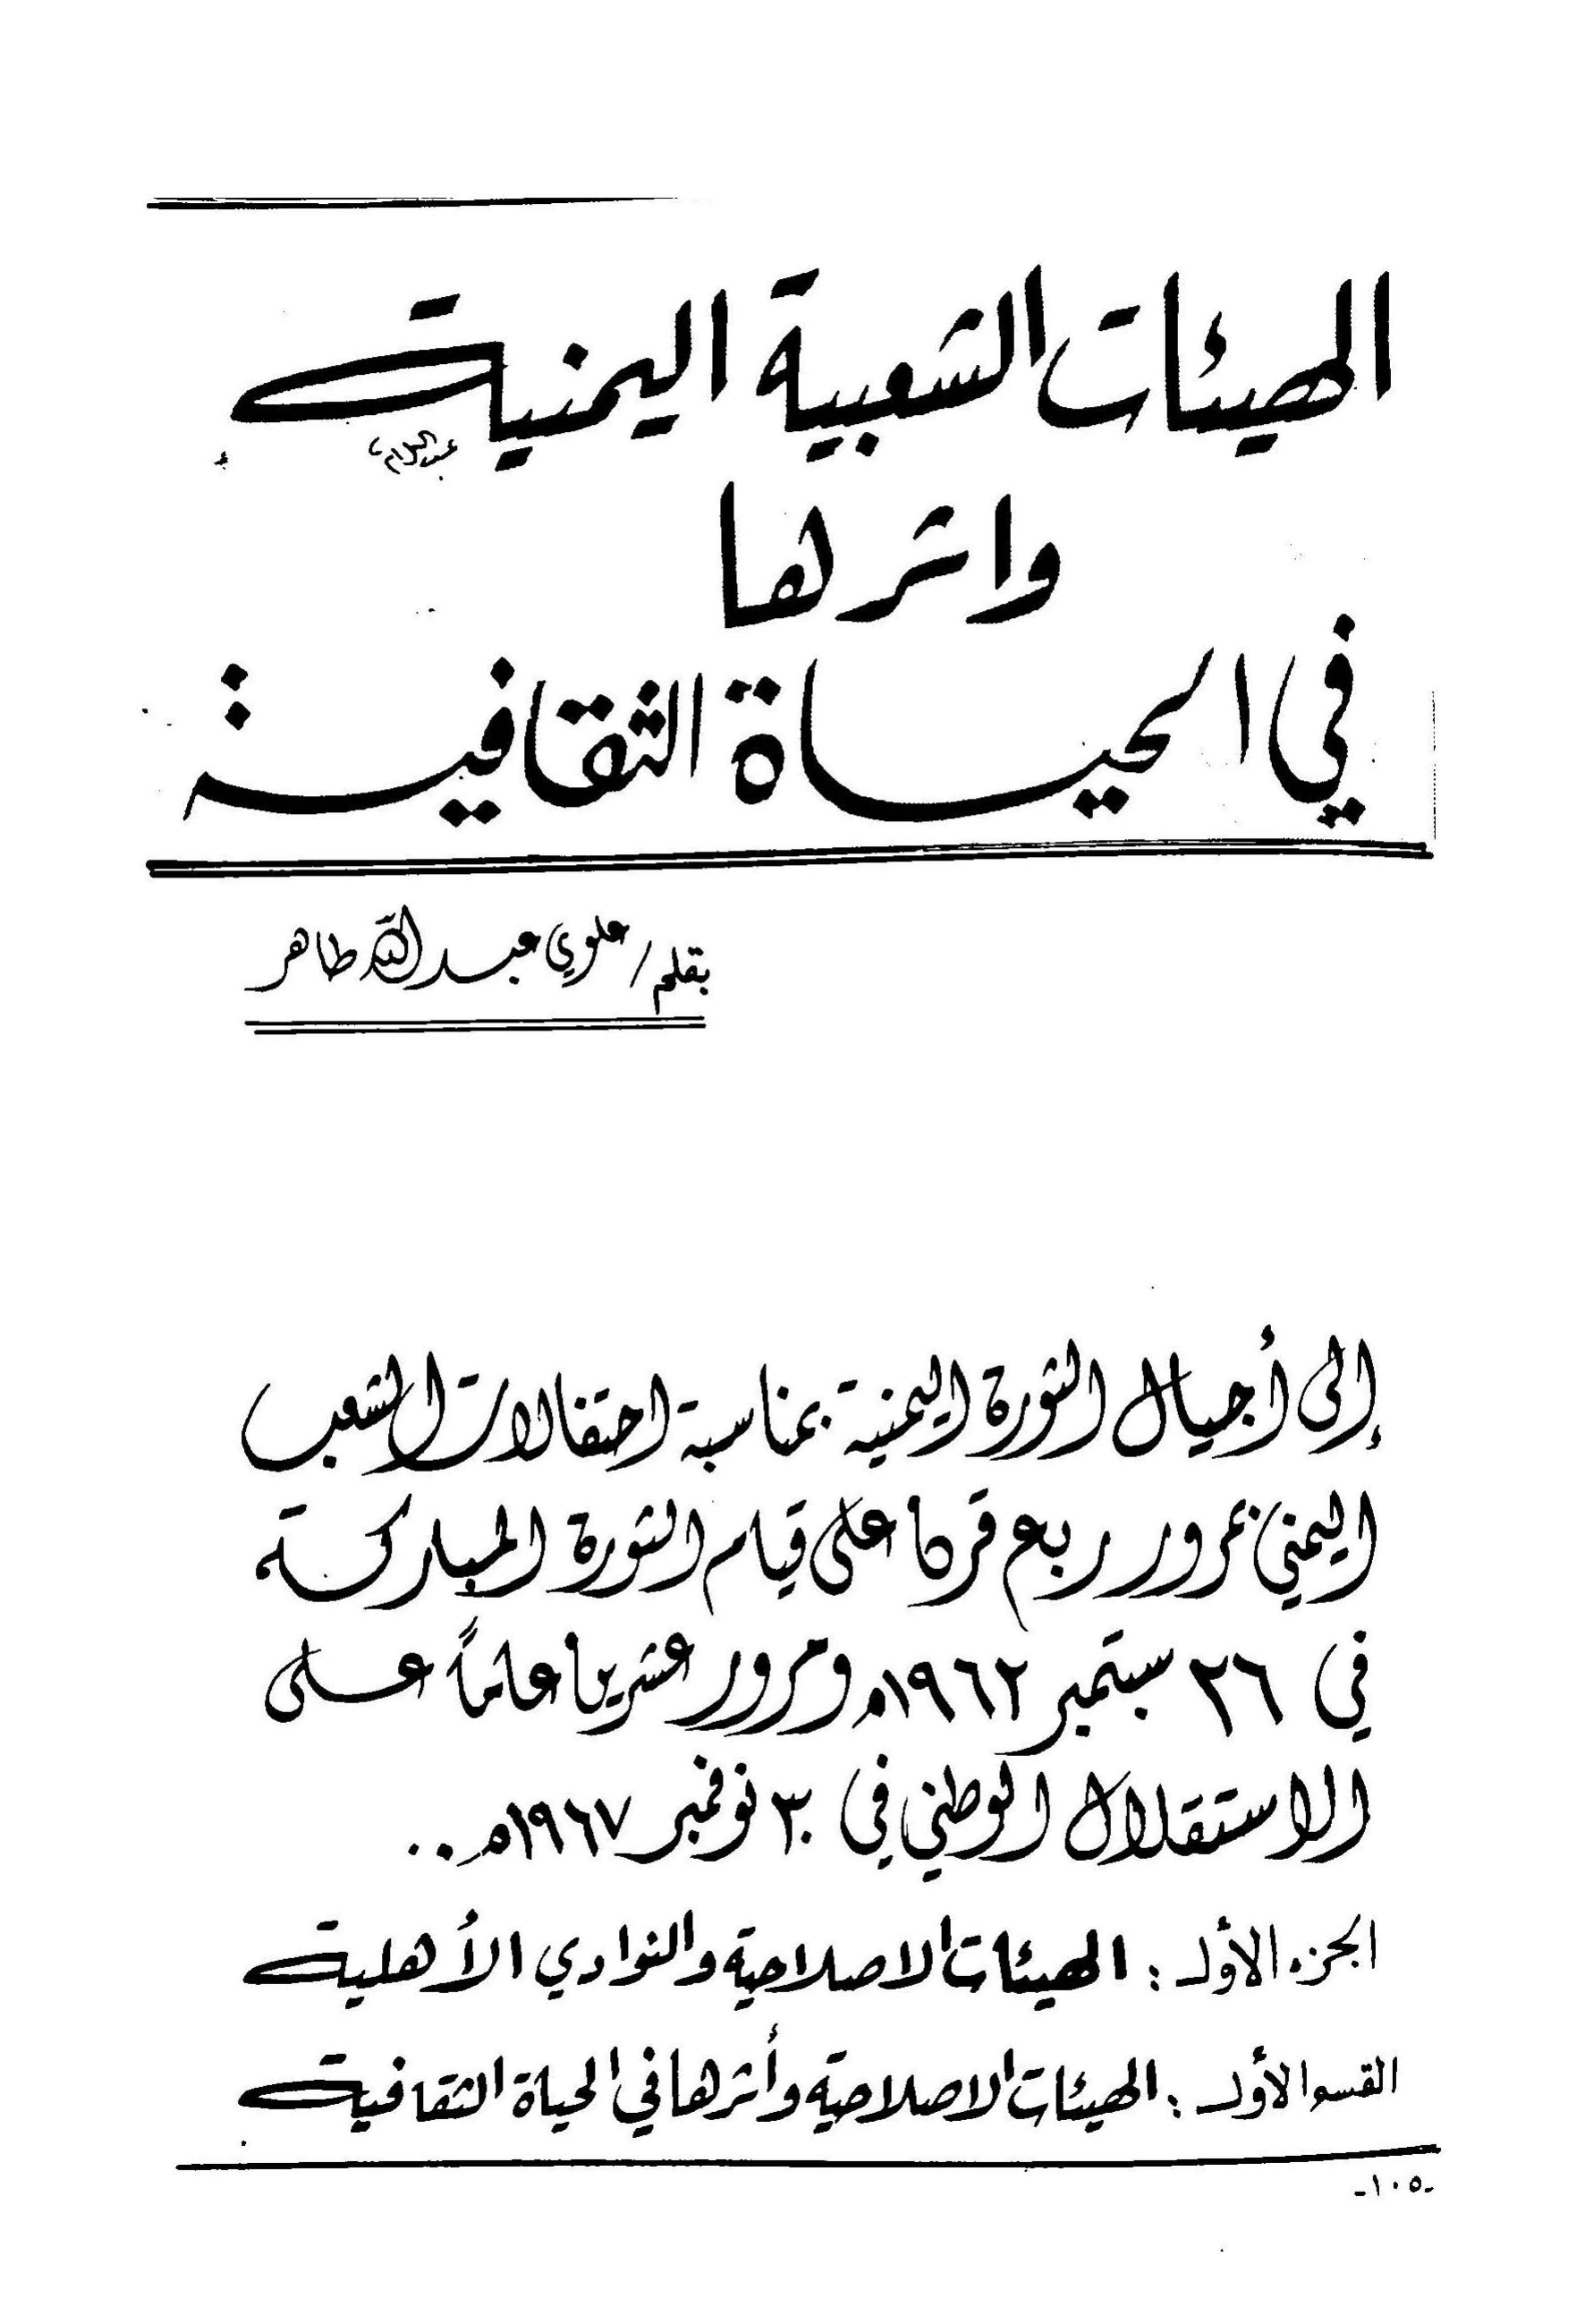 الهيئات الشعبية اليمنية
واثرها
في الحياة الثقافية
بقلم / علوي عبدالله طاهر
إلى أجيال الثورة اليمنية بمناسبة احتفالات الشعب
اليمني بمرور ربع قرن على قيام الثورة المباركة
في ٢٦ سبتمبر ١٩٦٢م ومرور عشرين عاماً على
الاستقلال الوطني في ٣٠ نوفمبر ١٩٦٧م ..
الجزء الأول : الهيئات الاصلاحية والنوادي الأهلية
القسم الأول : الهيئات الاصلاحية وأثرها في الحياة الثقافية
-١٠٥-